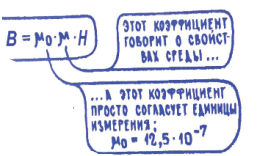 B = μ₀·μ·H
ЭТОТ КОЭФФИЦИЕНТ
ГОВОРИТ О СВОЙСТ-
ВАХ СРЕДЫ...
...А ЭТОТ КОЭФФИЦИЕНТ
ПРОСТО СОГЛАСУЕТ ЕДИНИЦЫ
ИЗМЕРЕНИЯ:
μ₀ = 12,5·10⁻⁷